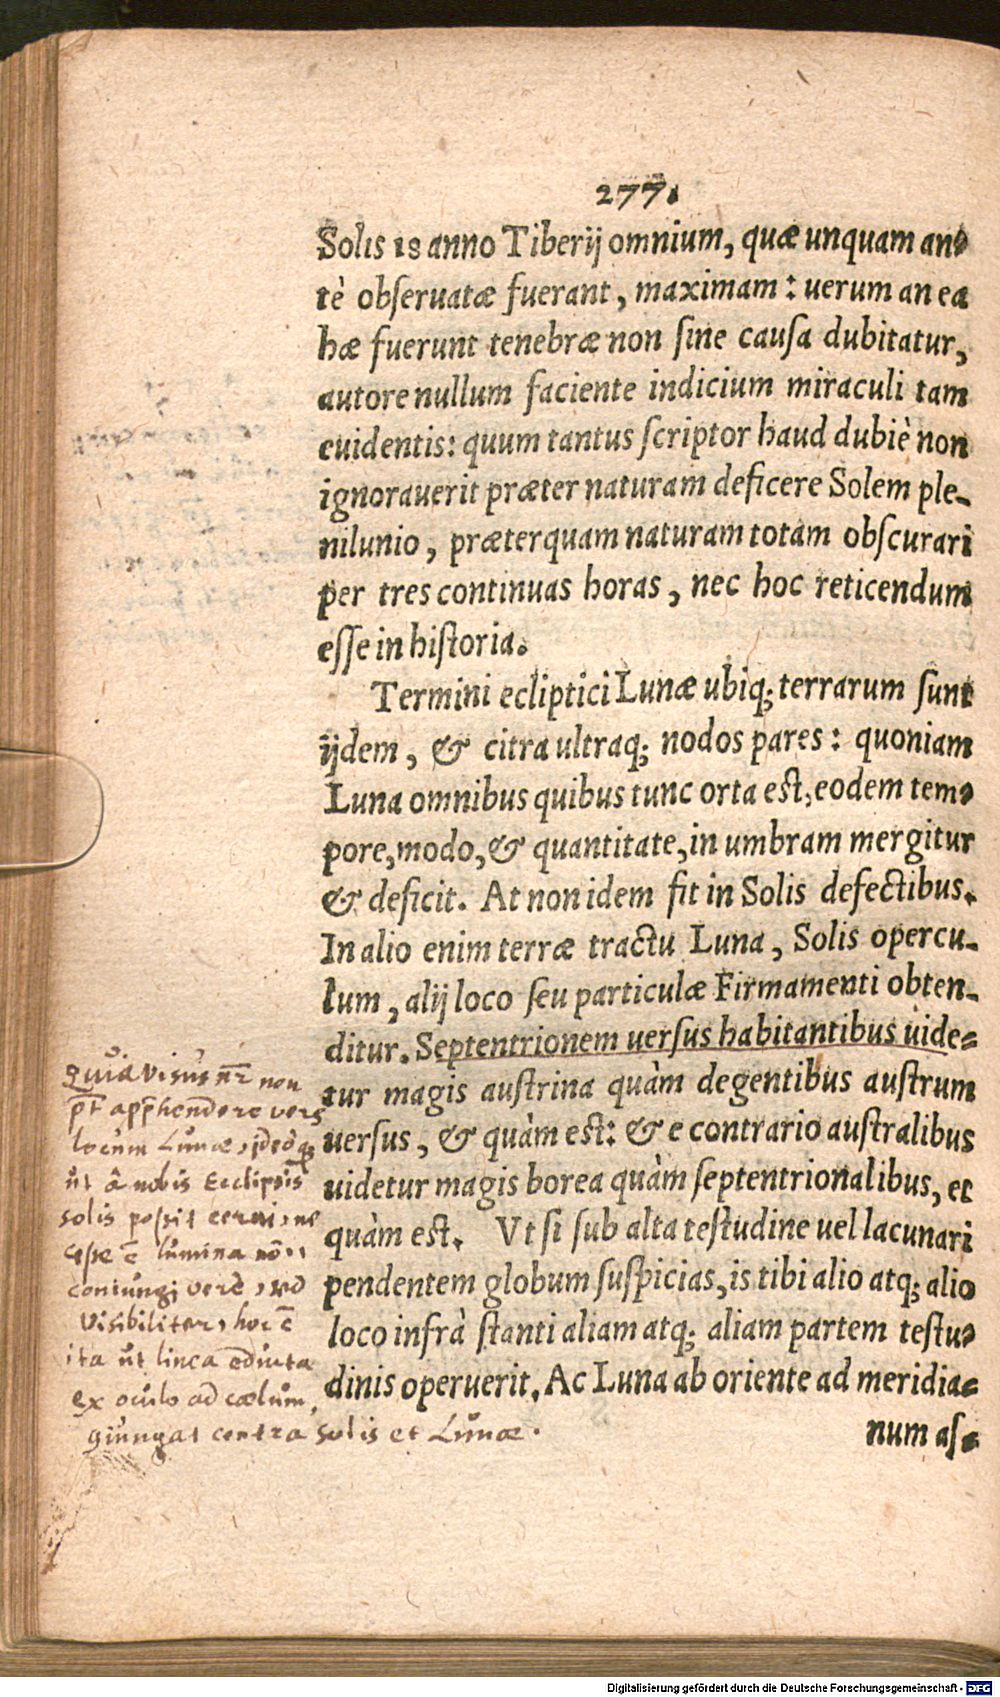 277.
Solis 18 anno Tiberij omnium, quæ unquam an⸗
tè obſeruatæ fuerant, maximam: uerum an ea
hæ fuerunt tenebræ non ſine cauſa dubitatur,
autore nullum faciente indicium miraculi tam
euidentis: quum tantus ſcriptor haud dubiè non
ignorauerit præter naturam deficere Solem ple-
nilunio, præterquam naturam totam obſcurari
per tres continuas horas, nec hoc reticendum
eſſe in hiſtoria.
Termini ecliptici Lunæ ubiq; terrarum ſunt
ijdem, & citra ultraq; nodos pares: quoniam
Luna omnibus quibus tunc orta eſt, eodem tem⸗
pore, modo, & quantitate, in umbram mergitur
& deficit. At non idem fit in Solis defectibus.
In alio enim terræ tractu Luna, Solis opercu-
lum, alij loco ſeu particulæ Firmamenti obten-
ditur. Septentrionem uerſus habitantibus uide⸗
tur magis auſtrina quàm degentibus auſtrum
uerſus, & quàm eſt: & e contrario auſtralibus
uidetur magis borea quàm ſeptentrionalibus, et
quàm eſt. Vt ſi sub alta teſtudine uel lacunari
pendentem globum ſuſpicias, is tibi alio atq; alio
loco infrà ſtanti aliam atq; aliam partem teſtu⸗
dinis operuerit. Ac Luna ab oriente ad meridia⸗
num aſ⸗
Quia visus nr̄ non
pt̄ app̄hendere
locum Lunæ,
ut â nobis Ecclipsis
solis possit cerni, ne
cesse ē lumina nō
coniungi verè,
visibiliter, hoc ē
ita ut linea educta
ex oculo ad cœlum,
giungat centra solis et Lunæ.
Digitalisierung gefördert durch die Deutsche Forschungsgemeinschaft - DFG